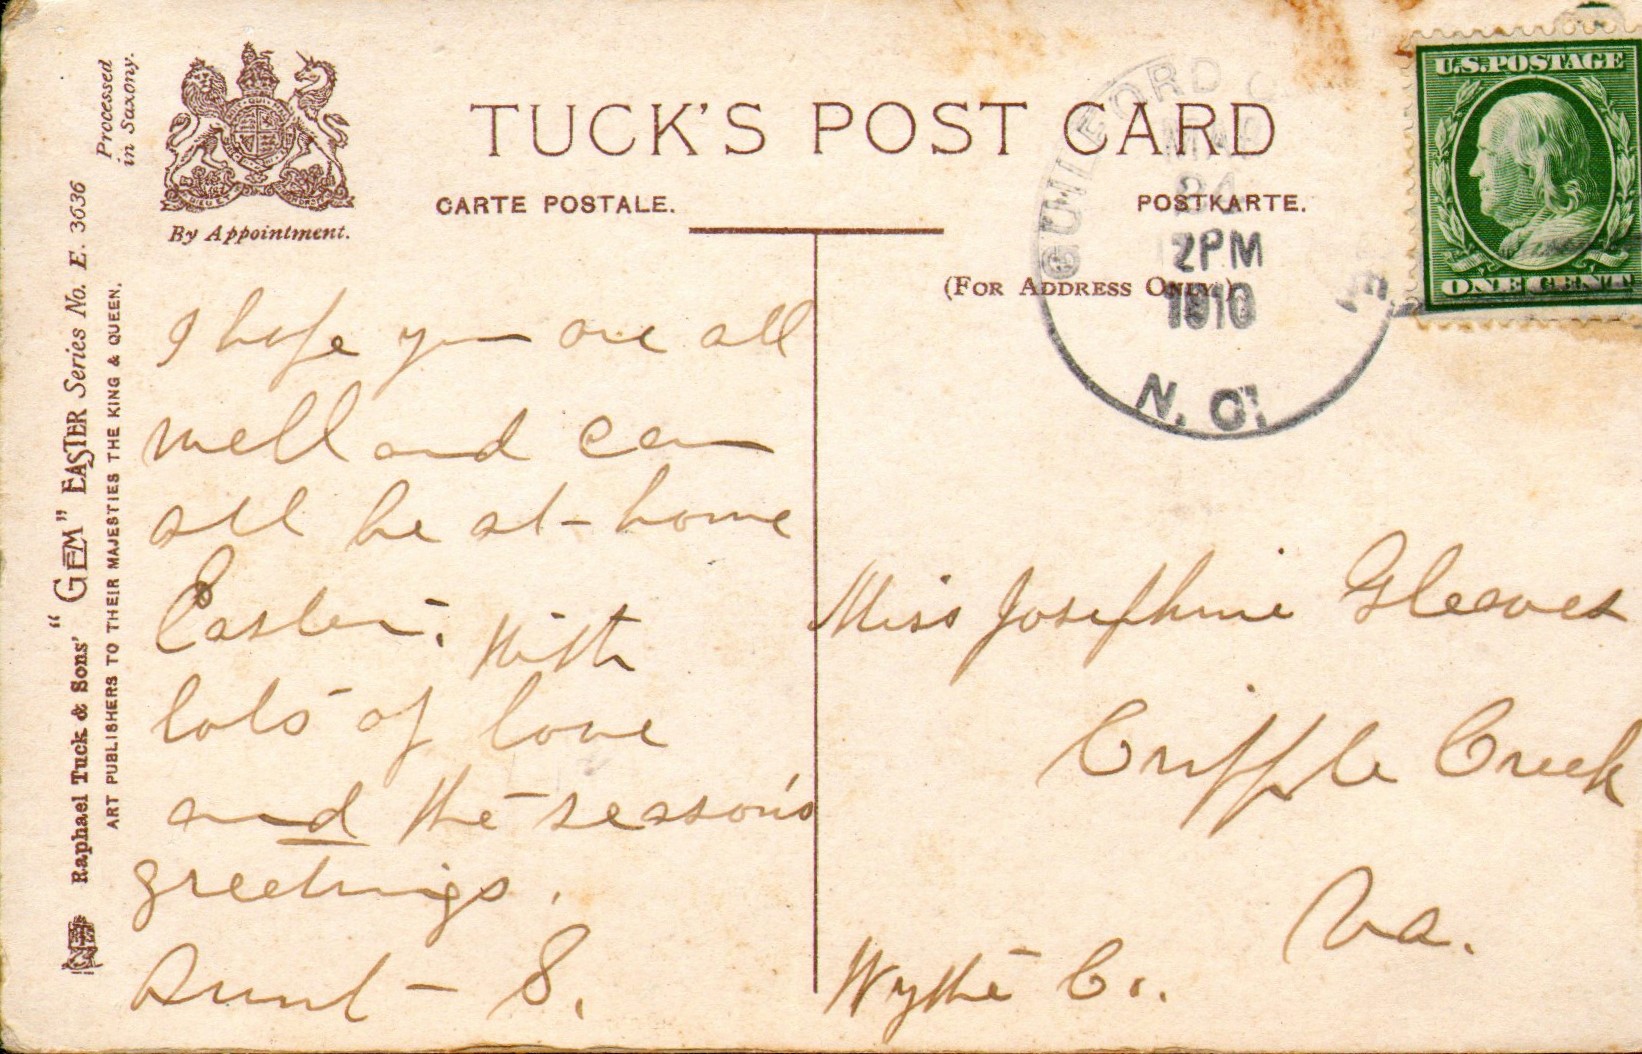 Processed
in Saxony.
By Appointment.
TUCK'S POST CARD
CARTE POSTALE.
POSTKARTE.
(FOR ADDRESS ONLY.)
Raphael Tuck & Sons' "GEM" EASTER Series No. E. 3636
ART PUBLISHERS TO THEIR MAJESTIES THE KING & QUEEN.
GUILFORD
24
2PM
1910
N. C.
U.S. POSTAGE
ONE CENT
I hope you are all
well and can
all be at home
Easter. With
lots of love
and the season's
greetings.
Aunt S.
Miss Josephine Gleaves
Cripple Creek
Va.
Wythe Co.